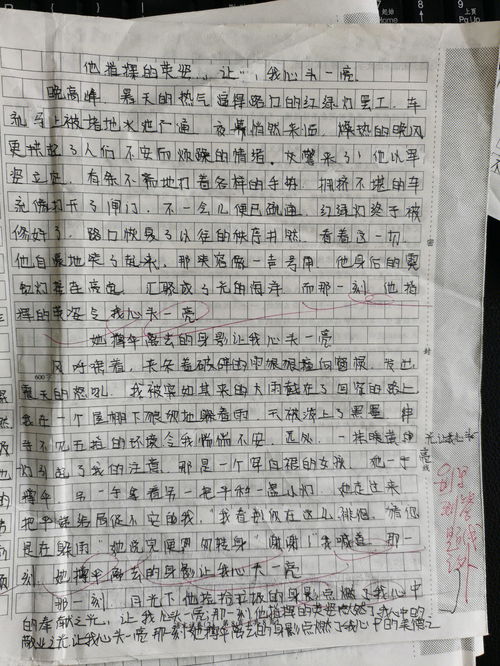 他指挥的英姿，让我心头一亮
晚高峰，暑天的热气逼得路口的红绿灯罢工，车
流马上被堵地水泄不通。夜幕悄然来临，燥热的晚风
更挟起了人们不安而烦躁的情绪。交警来了！他以军
姿立定，有条不紊地打着各样的手势，拥挤不堪的车
流像打开了闸门，不一会儿便已疏通。红绿灯终于被
修好了，路口恢复了以往的秩序井然。看着这一切，
他自豪地笑了起来，那笑容像一声号角，他身后的霓
虹灯接连亮起，汇聚成了光的海洋，而那一刻，他指
挥的英姿令我心头一亮
她撑伞离去的身影让我心头一亮
风呼啸着，夹杂着破碎的雨狠狠撞向窗棂，发出
震天的怒吼。我被突如其来的大雨截在了回家的路上，
我在一个屋棚下狼狈地躲着雨，天被染上了黑墨，伸
手不见五指的环境令我惴惴不安。远处，一抹暖黄的光让我心头一亮
灯引起了我的注意，那是一个穿白裙的女孩，她一手
撑伞，另一手拿着另一把伞和一盏小灯，她走过来
把伞递给局促不安的我，"我看到你在这儿徘徊，猜你
是在躲雨"她说完便匆匆转身"谢谢！"我喊着，那一
刻，她撑伞离去的身影让我心头一亮
那一刻，月光下他捡拾垃圾的身影点燃了我心中
的奉献之光，让我心头一亮；那一刻他指挥的英姿点燃了我心中的
敬业之光让我心头一亮 那一刻她撑伞离去的身影点燃了我心中的美德之
密
封
线
600